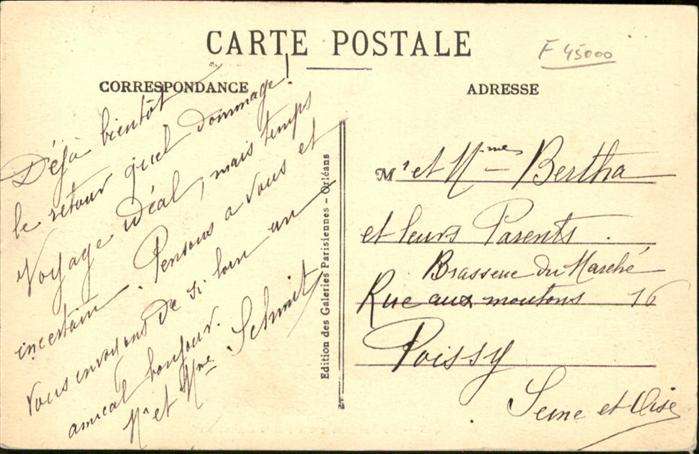 CARTE POSTALE
F 45000
CORRESPONDANCE
Déjà bientôt
le retour quel dommage!
Voyage idéal, mais temps
incertain. Pensons a vous et
vous envoyant de si loin un
amical bonjour.
Mr et Mme Schmit
Edition des Galeries Parisiennes - Orléans
ADRESSE
Mr et Mme Bertha
et leurs Parents.
Brasserie du Marché
Rue aux moutons 16
Poissy
Seine et Oise